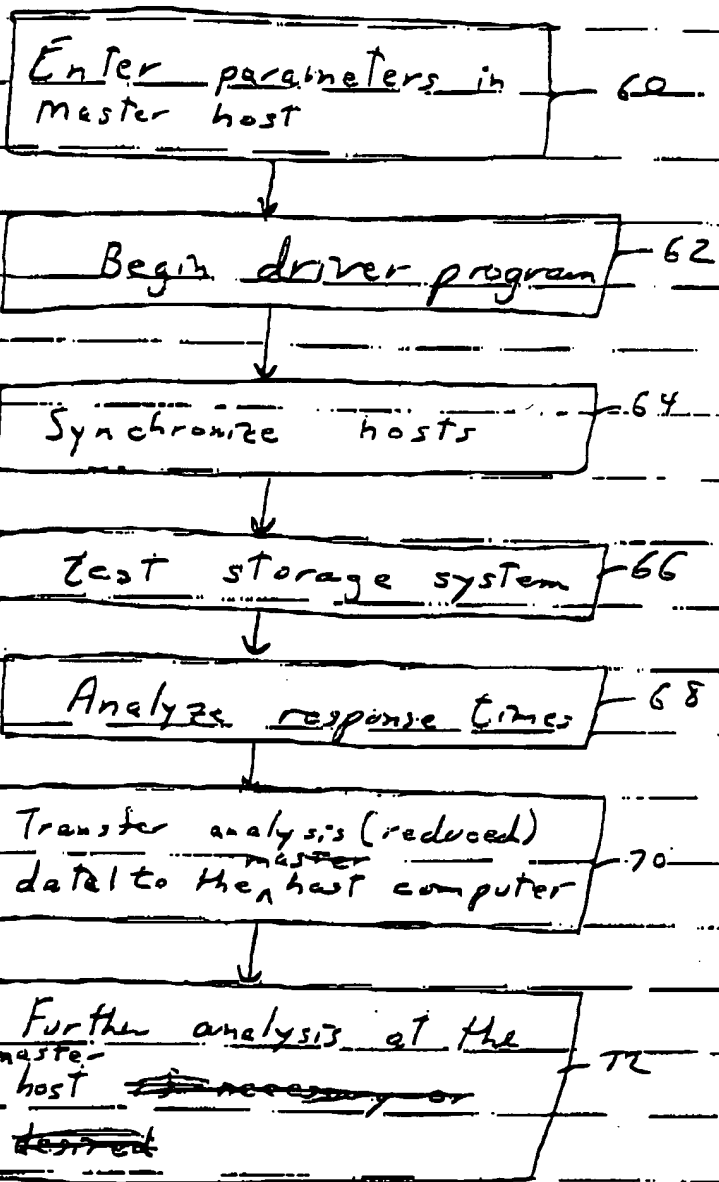 Enter parameters in
master host
60
Begin driver program
62
Synchronize hosts
64
test storage system
66
Analyze response times
68
Transfer analysis (reduced)
master
data to the ^ host computer
70
Further analysis at the
master
host if necessary or
desired
72